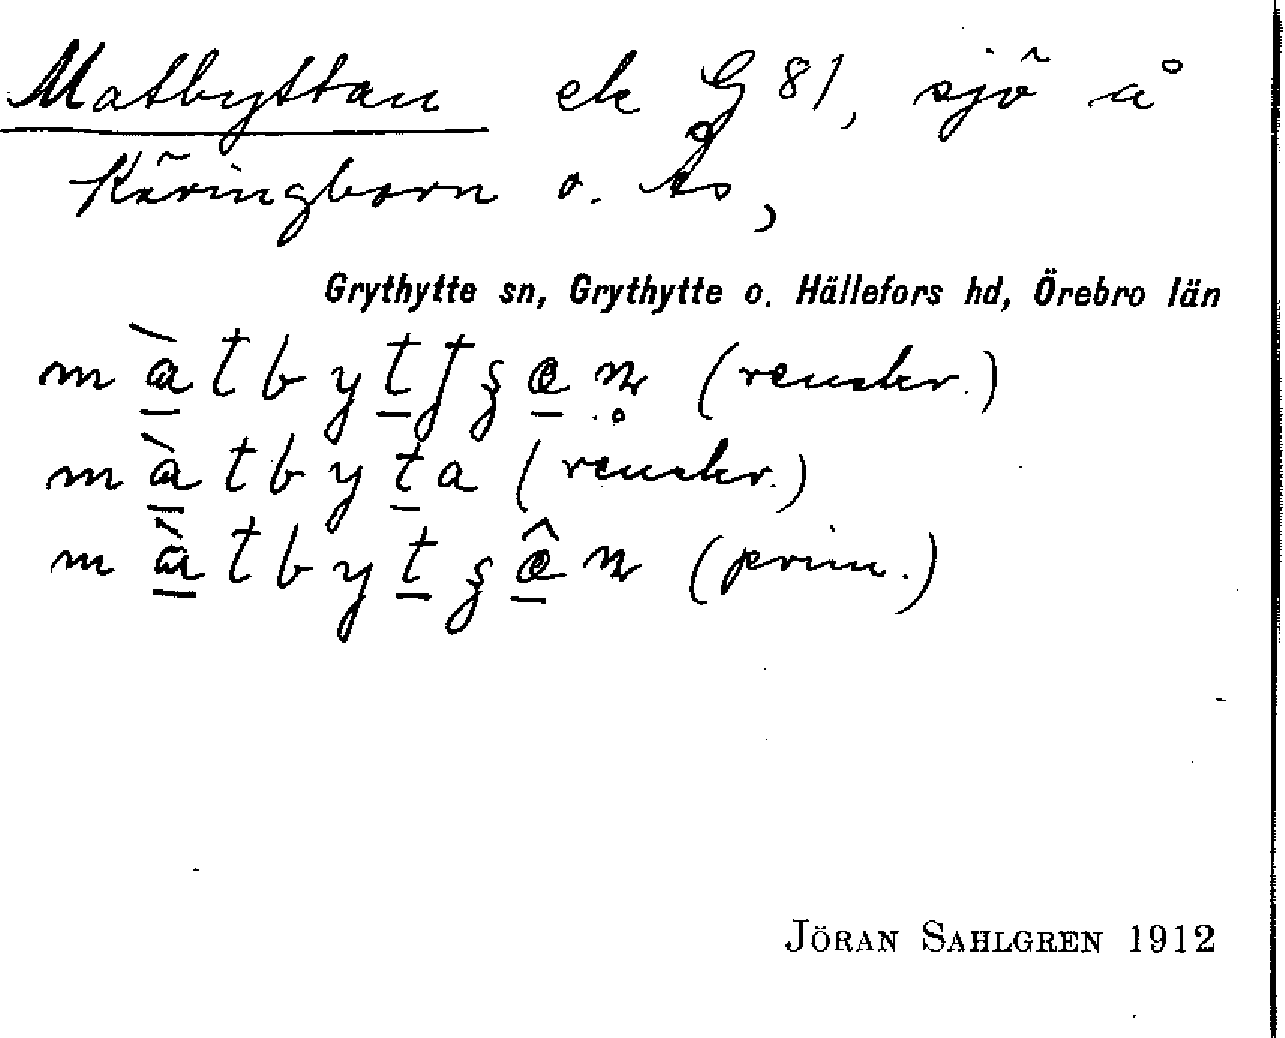 Matbyttan ek G 81, sjö å
Käringborn o. Ås,
Grythytte sn, Grythytte o. Hällefors hd, Örebro län
(renskr.)
màtbyta (renskr.)
(prim.)
JÖRAN SAHLGREN 1912